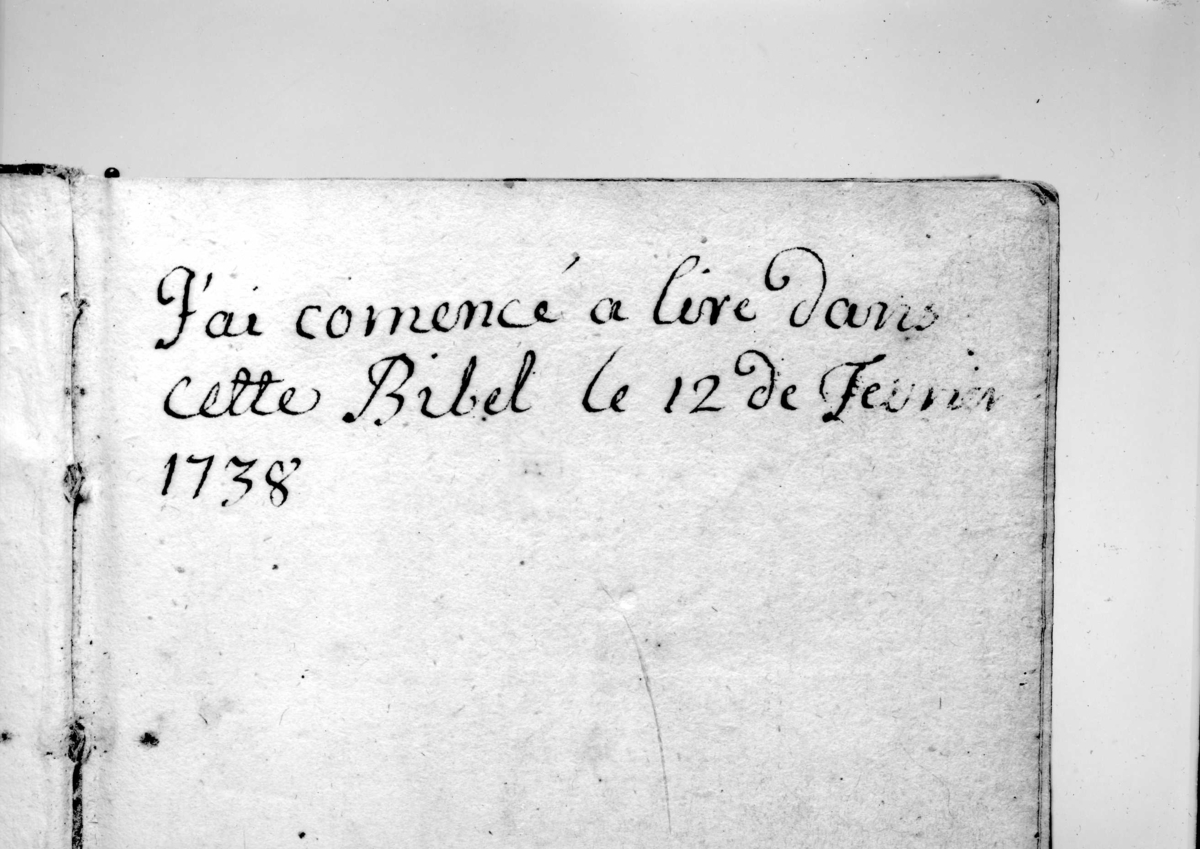 J'ai comencé a lire dans
cette Bibel le 12 de Fevrier
1738